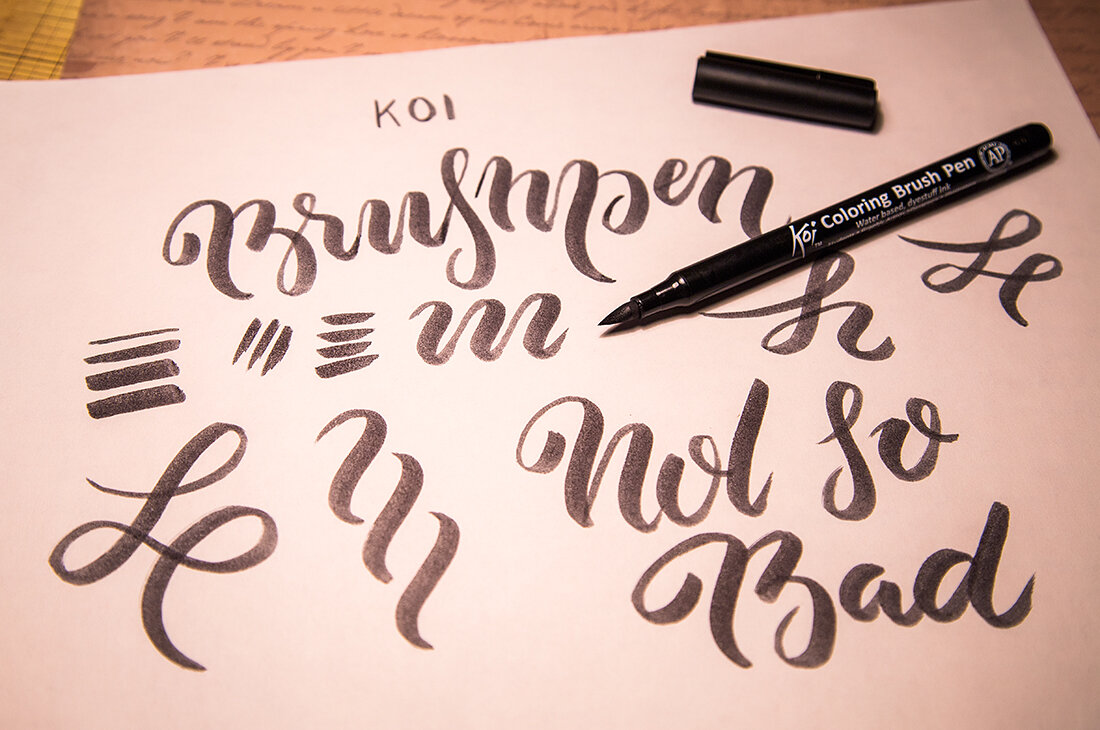 KOI
Brushpen
Koi Coloring Brush Pen
TM
Water based, dyestuff ink
AP
m
h
Not so
Bad